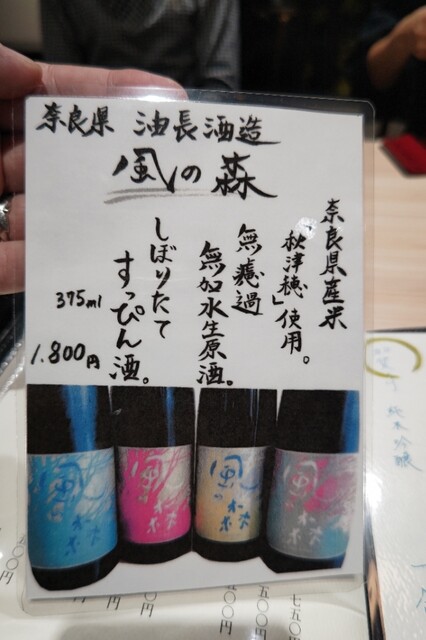 奈良県 油長酒造
風の森
奈良県産米
「秋津穂」使用。
無濾過
無加水生原酒。
しぼりたて
すっぴん酒。
375ml
1.800円
風の森
風の森
風の森
風の森
純米吟醸